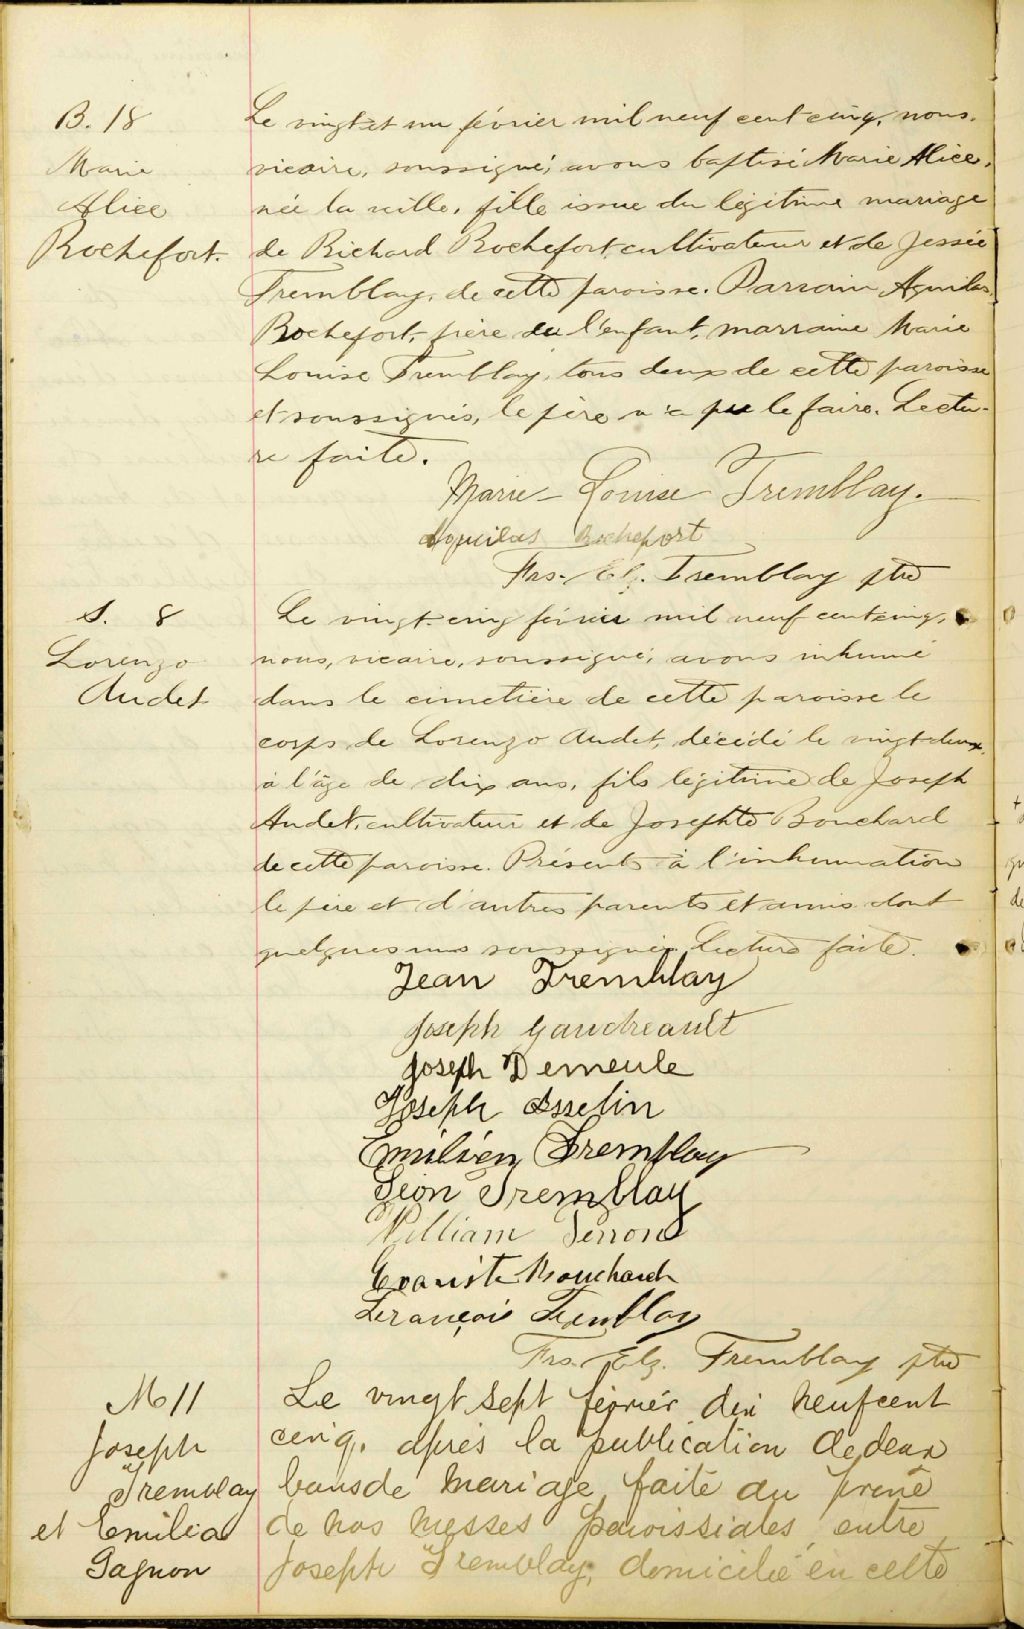 B. 18
Marie
Alice
Rochefort.
Le vingt et un février mil neuf cent cinq, nous,
vicaire, soussigné, avons baptisé Marie Alice,
née la veille, fille issue du légitime mariage
de Richard Rochefort, cultivateur et de Jessée
Tremblay, de cette paroisse. Parrain Aquilas
Rochefort, frère de l'enfant, marraine Marie
Louise Tremblay, tous deux de cette paroisse
et soussignés, le père n'a pu le faire. Lectu-
re faite.
Marie-Louise Tremblay.
Aquilas Rochefort
Frs. Elz. Tremblay ptre
S. 8
Lorenzo
Audet
Le vingt-cinq février mil neuf cent cinq,
nous, vicaire, soussigné, avons inhumé
dans le cimetière de cette paroisse le
corps de Lorenzo Audet, décédé le vingt-deux,
à l'âge de dix ans, fils légitime de Joseph
Audet, cultivateur et de Josephte Bouchard
de cette paroisse. Présents à l'inhumation
le père et d'autres parents et amis dont
quelques uns soussignés. Lecture faite.
Jean Tremblay
Joseph Gaudreault
Joseph Demeule
Joseph Asselin
Emilien Tremblay
Léon Tremblay
William Perron
Evariste Bouchard
François Tremblay
Frs. Elz. Tremblay ptre
M 11
Joseph
Tremblay
et Emilia
Gagnon
Le vingt sept février dix neuf cent
cinq, après la publication de deux
bans de mariage faite au prône
de nos messes paroissiales, entre
Joseph Tremblay, domicilié en cette